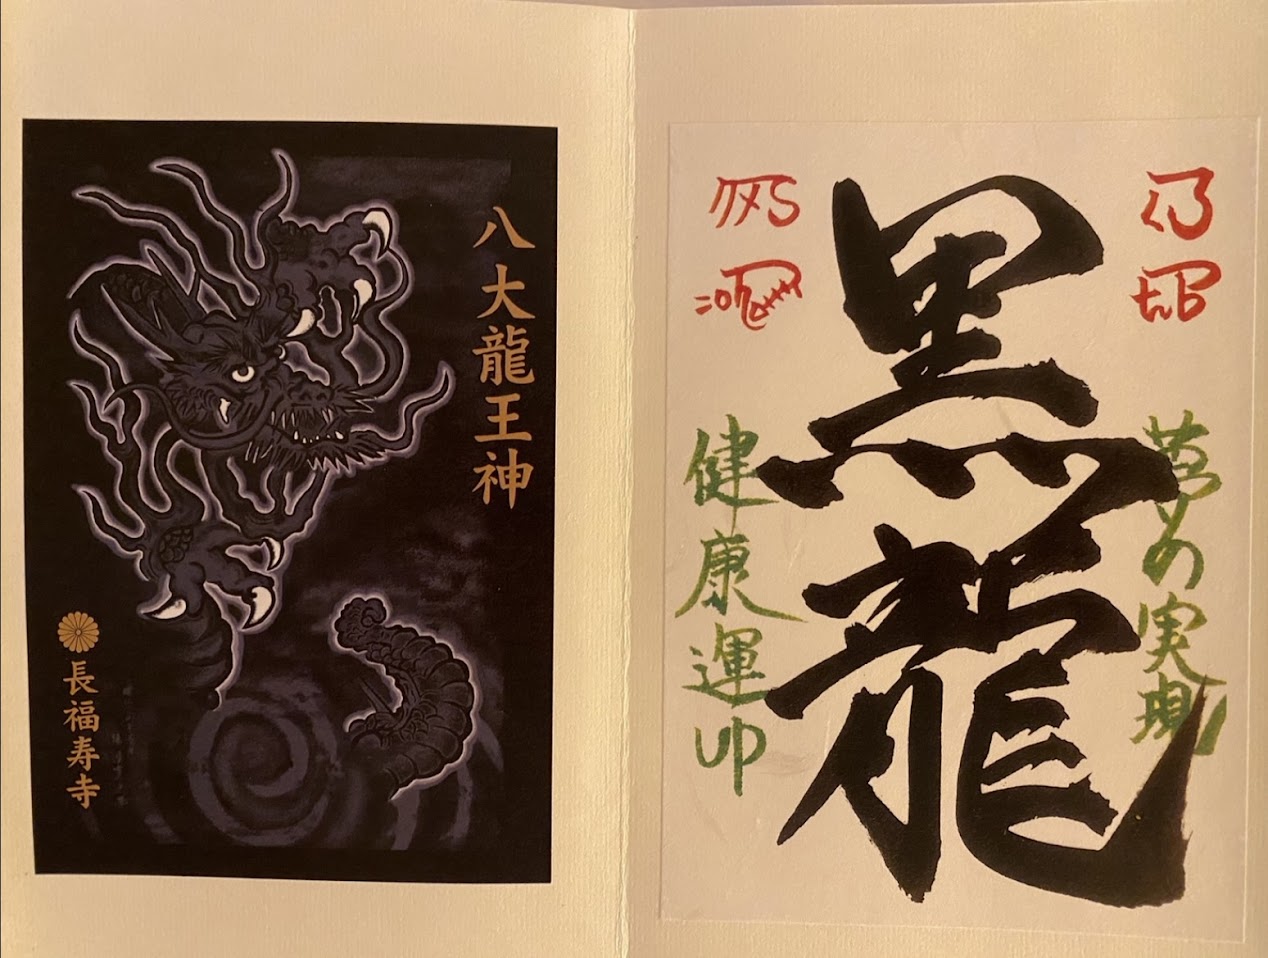 八大龍王神
長福寿寺
黒龍
の実現
健康運UP